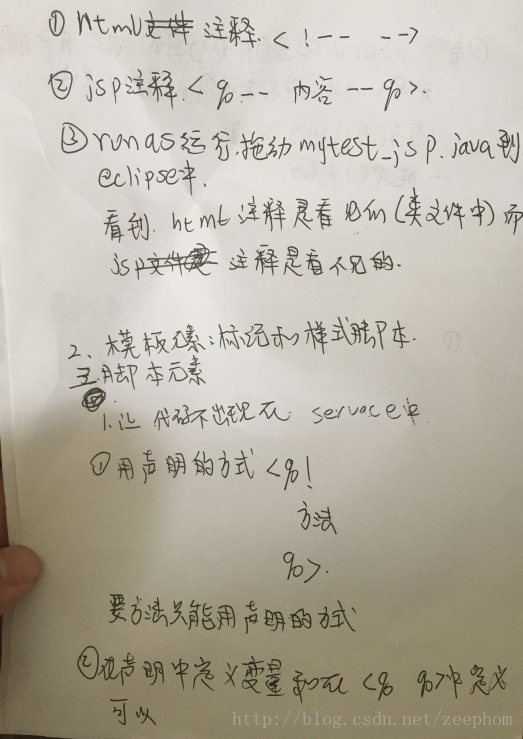 ① html 注释. < ! -- -->
② jsp注释. < % -- 内容 -- % >.
③ run as 运行.拖动 mytest_jsp.java到
eclipse中.
看到. html 注释是看见的(类文件中)而
jsp 注释是看不见的.
2、模板元素:标记和样式脚本.
三.脚本元素
1.让代码不出现在 servace中
① 用声明的方式 <%!
方法
%>.
要方法只能用声明的方式
②在声明中定义变量和在 <% %>中定义
可以
http://blog.csdn.net/zeephom